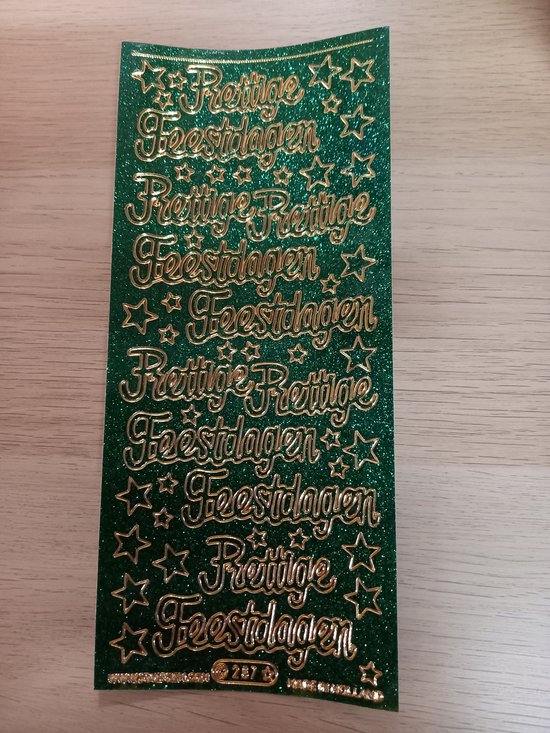 Prettige
Feestdagen
Prettige Prettige
Feestdagen
Feestdagen
Prettige Prettige
Feestdagen
Feestdagen
Prettige
Feestdagen
287